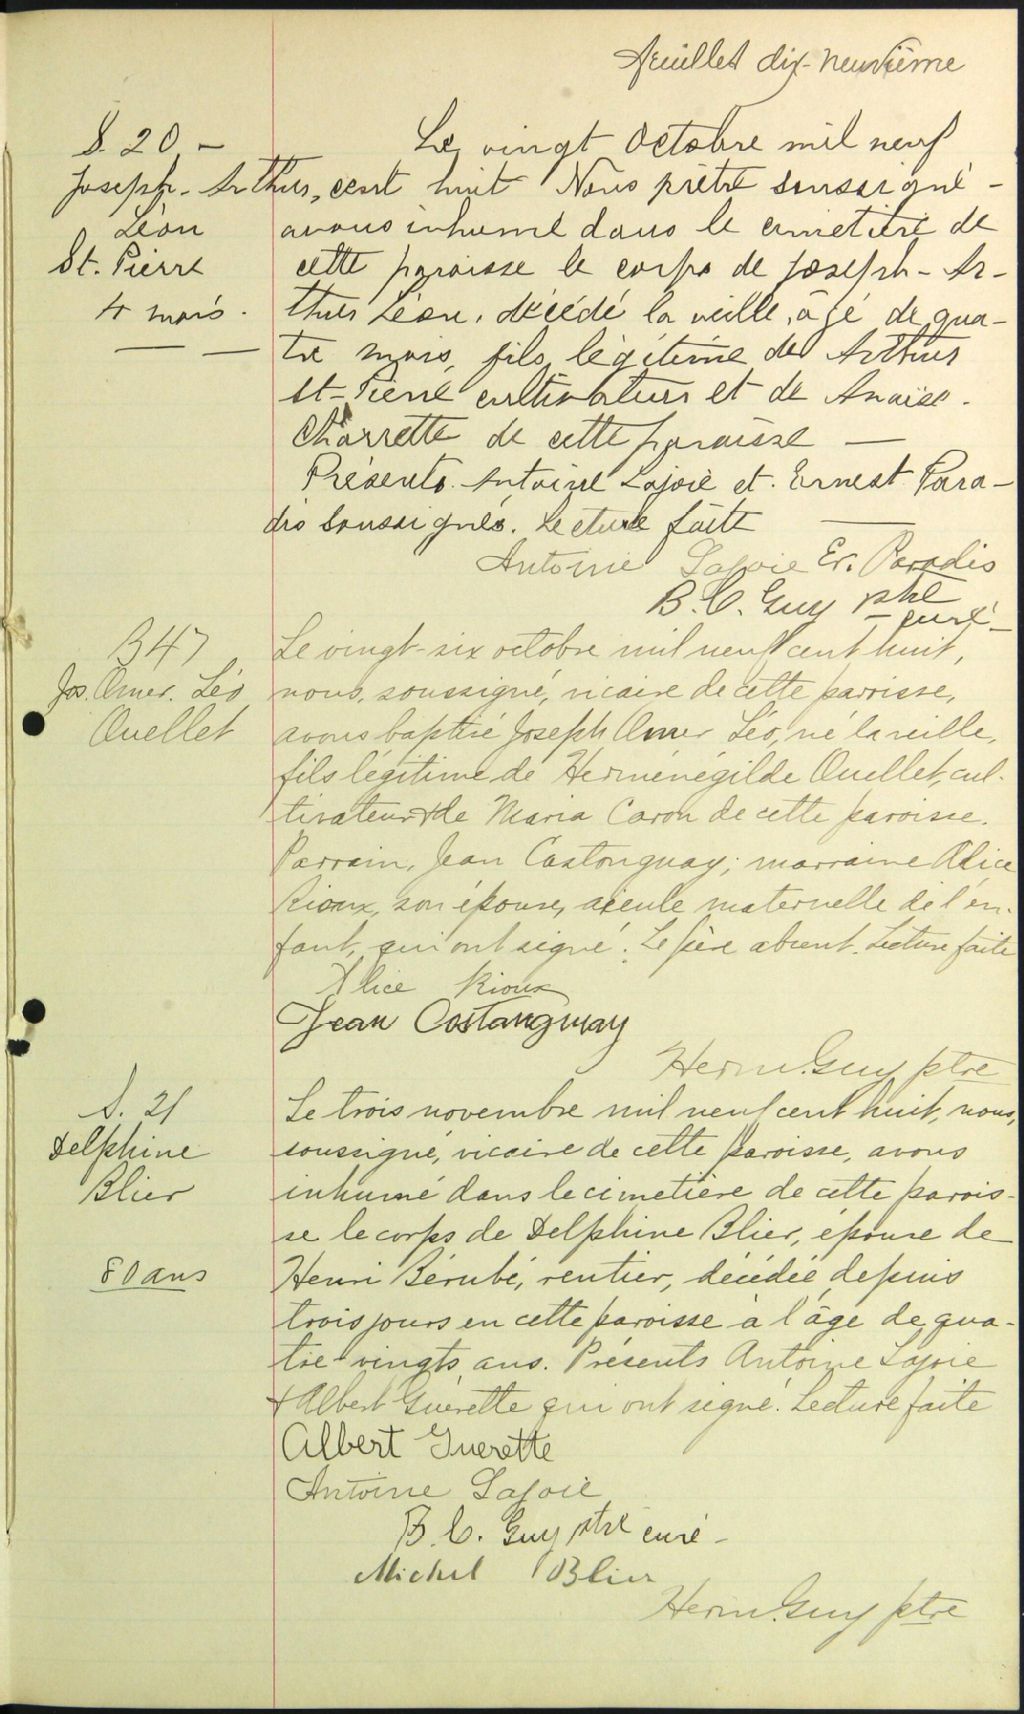 feuillet dix-neuvième
S. 20 -
Joseph-Arthur,
Léon
St. Pierre
4 mois.
Le vingt Octobre mil neuf
cent huit Nous prêtre soussigné -
avons inhumé dans le cimetière de
cette paroisse le corps de Joseph-Ar-
thur Léon, décédé la veille, âgé de qua-
tre mois, fils légitime de Arthur
St-Pierre cultivateur et de Anaïse.
Charrette de cette paroisse —
Présents. Antoine Lajoie et. Ernest Para-
dis soussignés. Lecture faite —
Antoine Lajoie Er. Paradis
B. C. Guy ptre
curé -
B 47
Jos. Omer. Léo
Ouellet
Le vingt-six octobre mil neuf cent huit,
nous, soussigné, vicaire de cette paroisse,
avons baptisé Joseph Omer Léo, né la veille,
fils légitime de Herménégilde Ouellet, cul-
tivateur & de Maria Caron de cette paroisse.
Parrain, Jean Castonguay; marraine Alice
Rioux, son épouse, aieule maternelle de l'en-
fant, qui ont signé. Le père absent. Lecture faite
Alice Rioux
Jean Costanguay
Herm. Guy ptre
S. 21
Delphine
Blier
80 ans
Le trois novembre mil neuf cent huit, nous,
soussigné, vicaire de cette paroisse, avons
inhumé dans le cimetière de cette parois-
se le corps de Delphine Blier, épouse de
Henri Bérubé, rentier, décédée depuis
trois jours en cette paroisse à l'âge de qua-
tre-vingts ans. Présents Antoine Lajoie
& Albert Guérette qui ont signé. Lecture faite
Albert Guerette
Antoine Lajoie
B. C. Guy ptre curé -
Michel Blier
Herm. Guy ptre